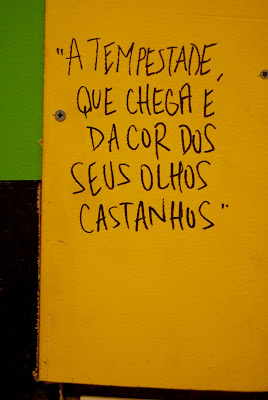 "A TEMPESTADE,
QUE CHEGA E
DA COR DOS
SEUS OLHOS
CASTANHOS"